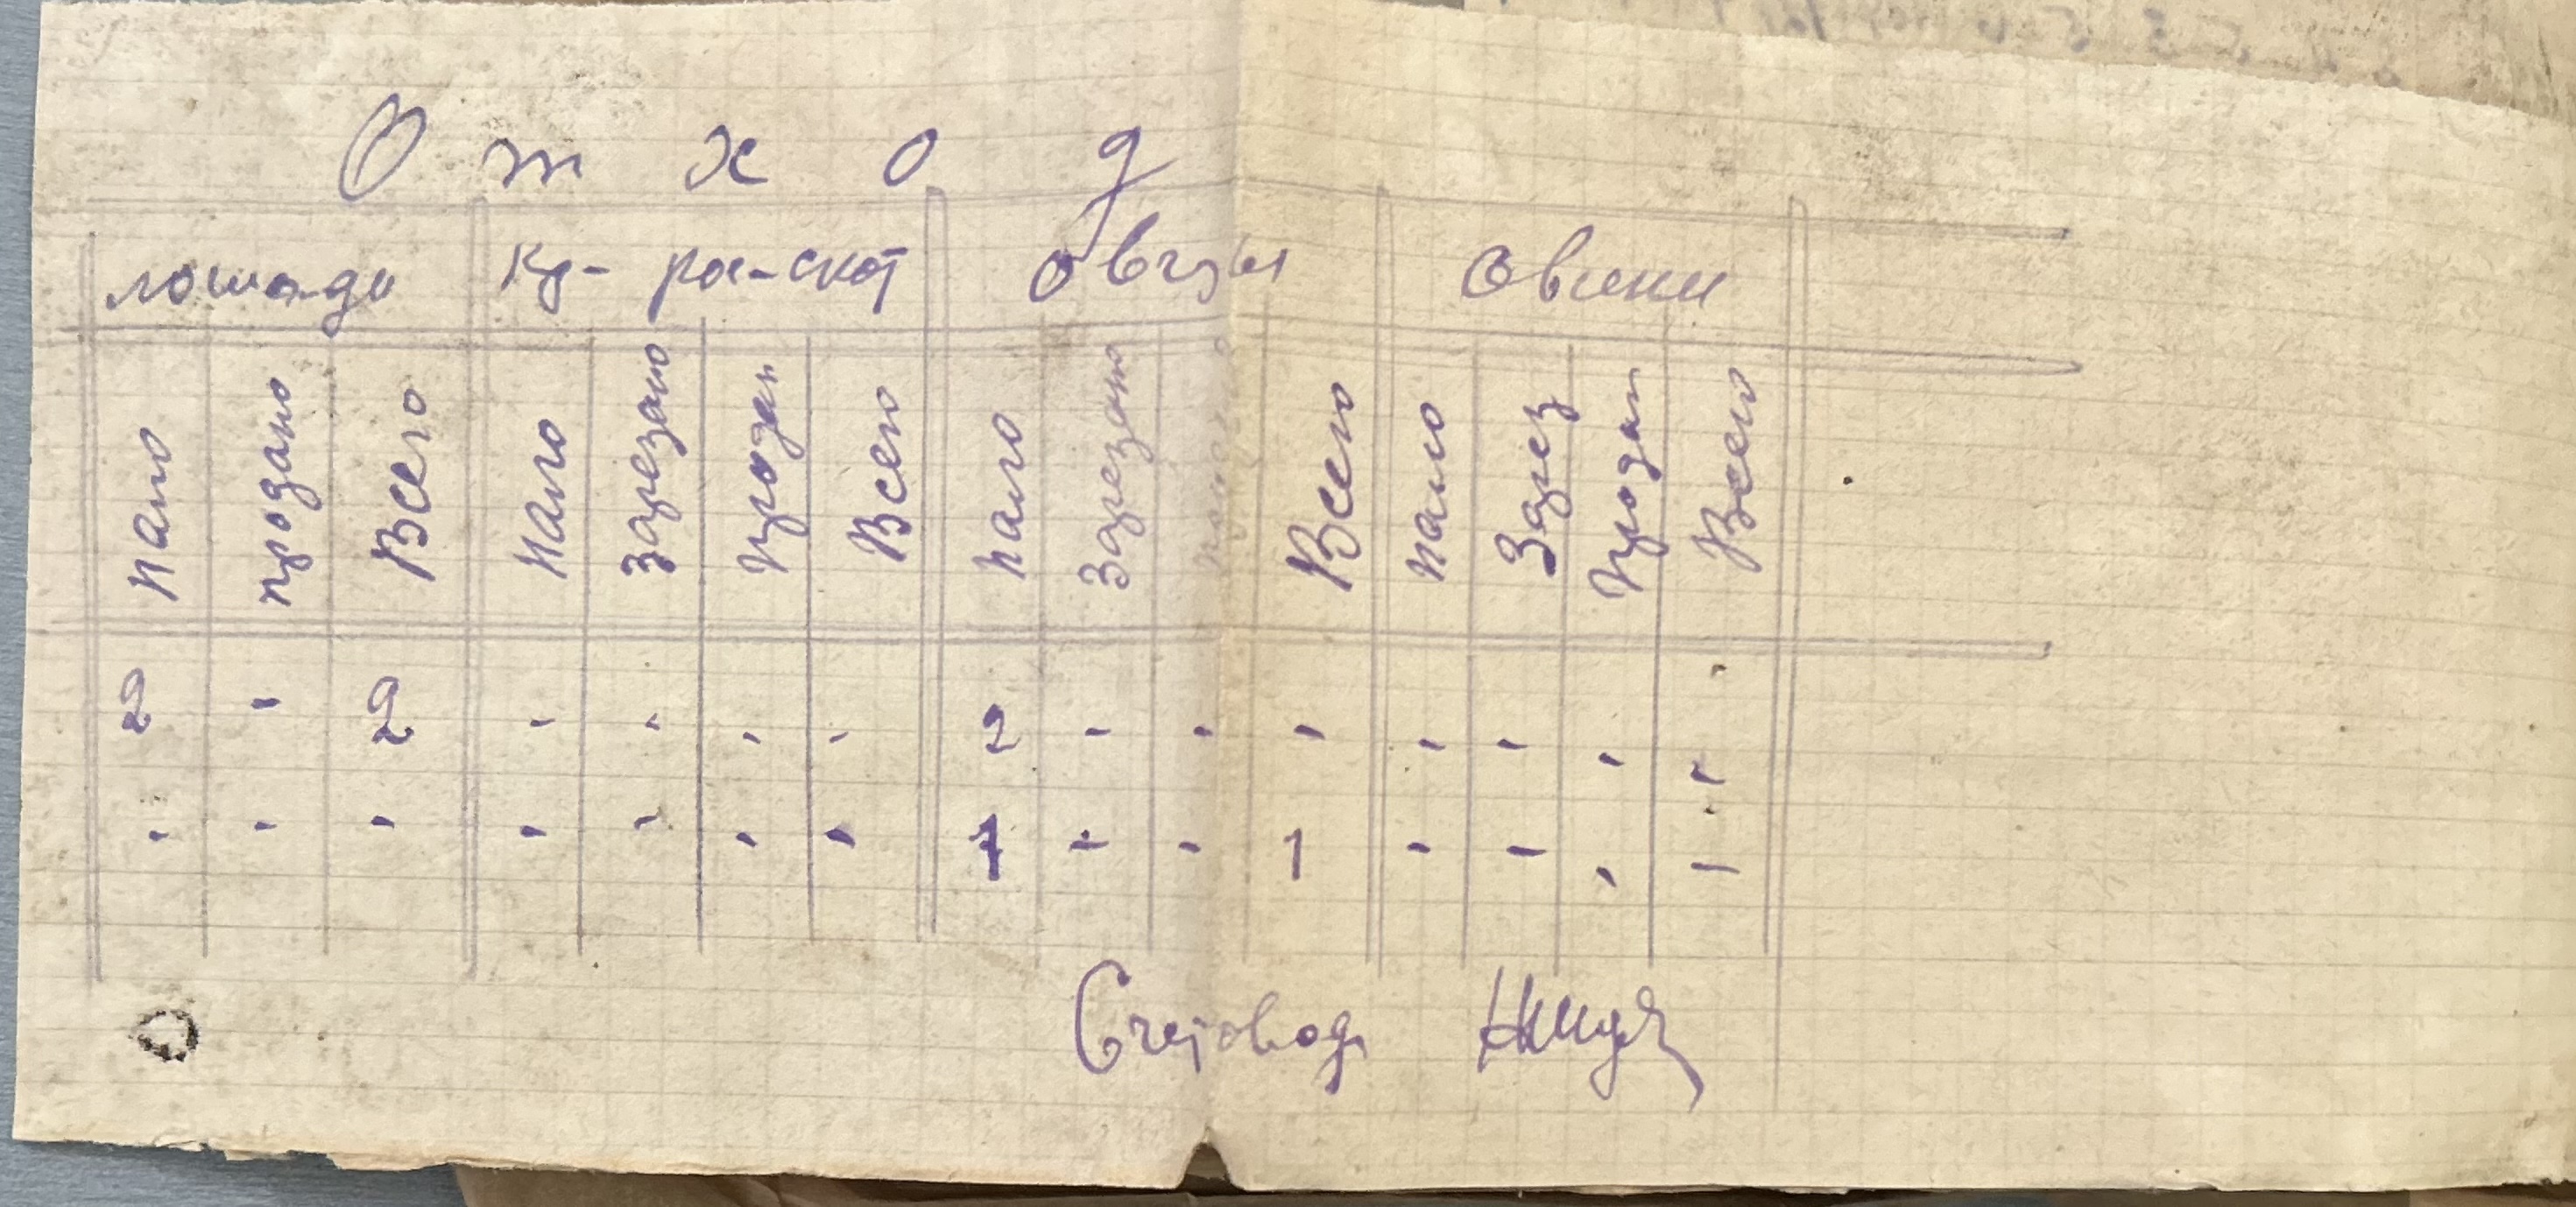 Отход
лошади кр-ро-скот овцы свини
пало продано Всего пало зарезано продан Всего пало зарезано Всего пало Зарез Продан Всего
2 - 2 - - - - 2 - - - - - - -
- - - - - - - 1 - - 1 - - - -
Счетовод